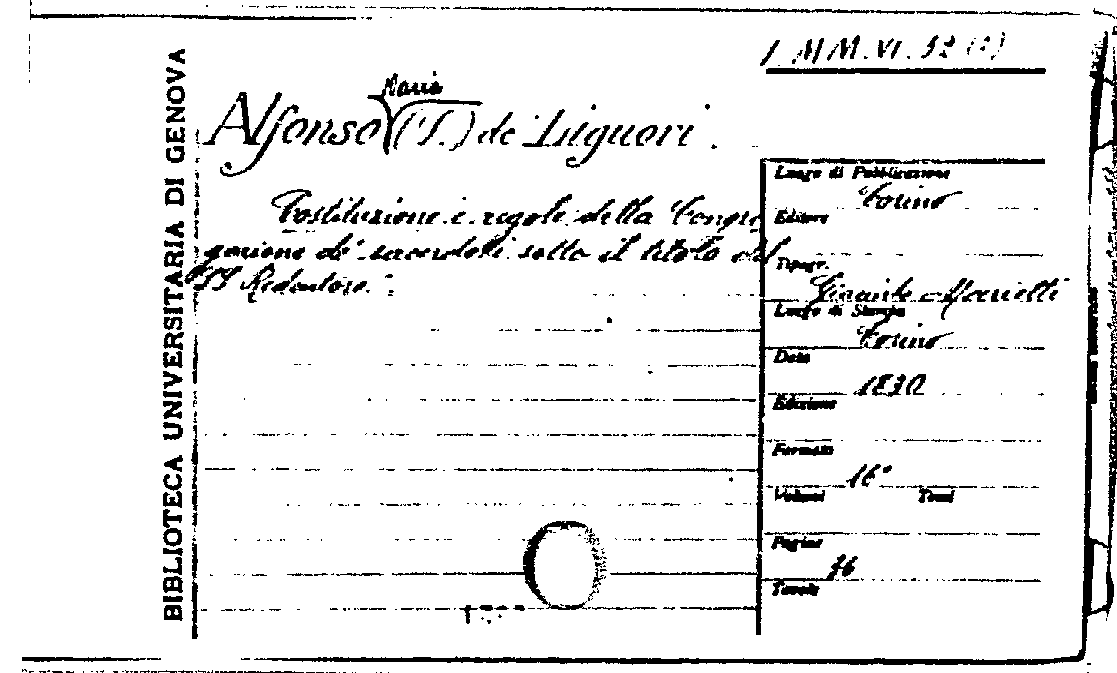 1 MM.VI.52 (2)
BIBLIOTECA UNIVERSITARIA DI GENOVA
Maria
Alfonso (S.) de Liguori.
Costituzione e regole della Congre
gazione de' sacerdoti sotto il titolo del
SS Redentore.
Luogo di Pubblicazione
Torino
Editore
Tipogr.
Giacinto Marietti
Luogo di Stampa
Torino
Data
1830
Edizione
Formato
16°
Volumi Tomi
Pagine
76
Tavole